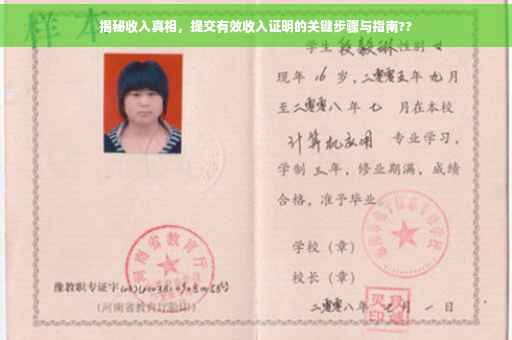 揭秘收入真相，提交有效收入证明的关键步骤与指南??
样本
学生 段毅琳 性别 女
现年 16 岁，二零零五年 九月
至二零零八年 七 月在本校
计算机应用 专业学习，
学制 三年，修业期满，成绩
合格，准予毕业
学校（章）
校长（章）
二零零八年 七月 一日
河南省教育厅
豫教职专证字
(河南省教育厅验印)